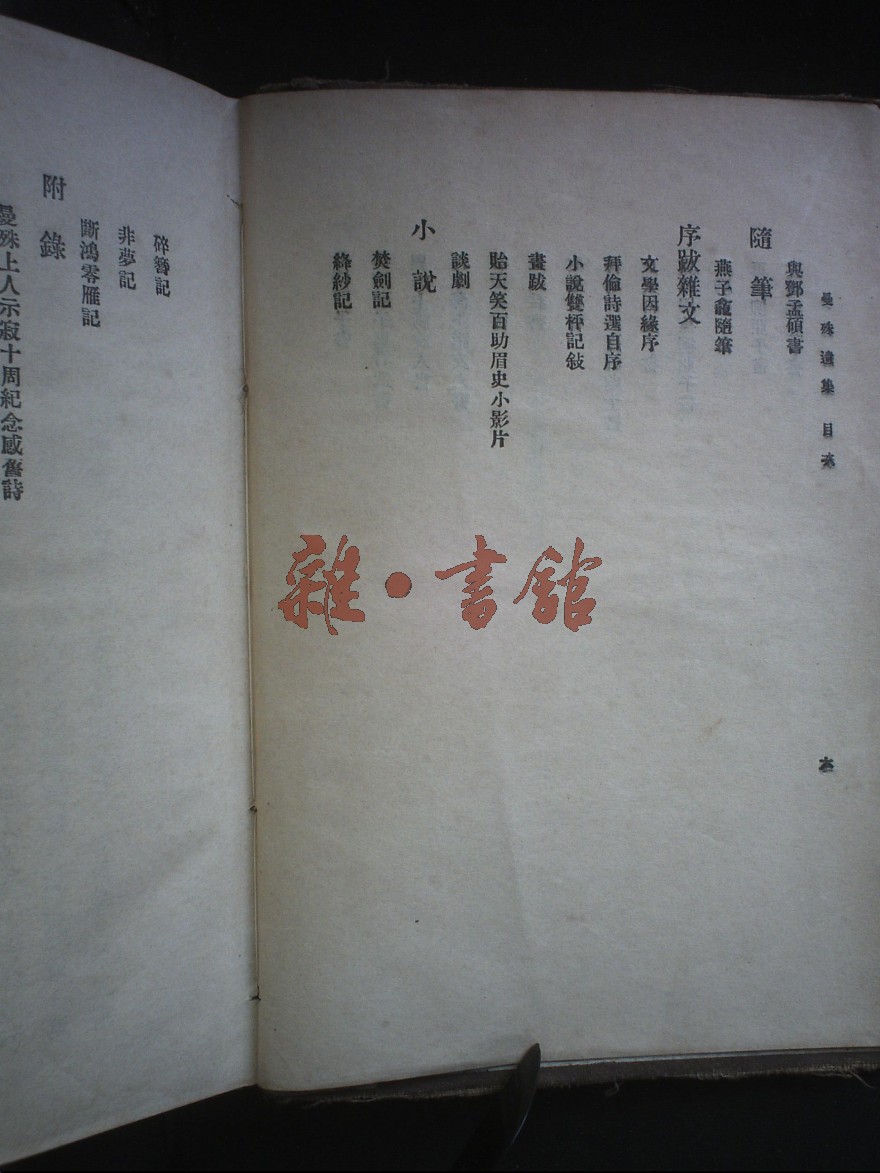 曼殊遺集 目次
六
與鄧孟碩書
隨筆
燕子龕隨筆
序跋雜文
文學因緣序
拜倫詩選自序
小說雙枰記敍
畫跋
貽天笑百助眉史小影片
談劇
小說
焚劍記
絳紗記
碎簪記
非夢記
斷鴻零雁記
附錄
曼殊上人示寂十周紀念感舊詩
雜·書館